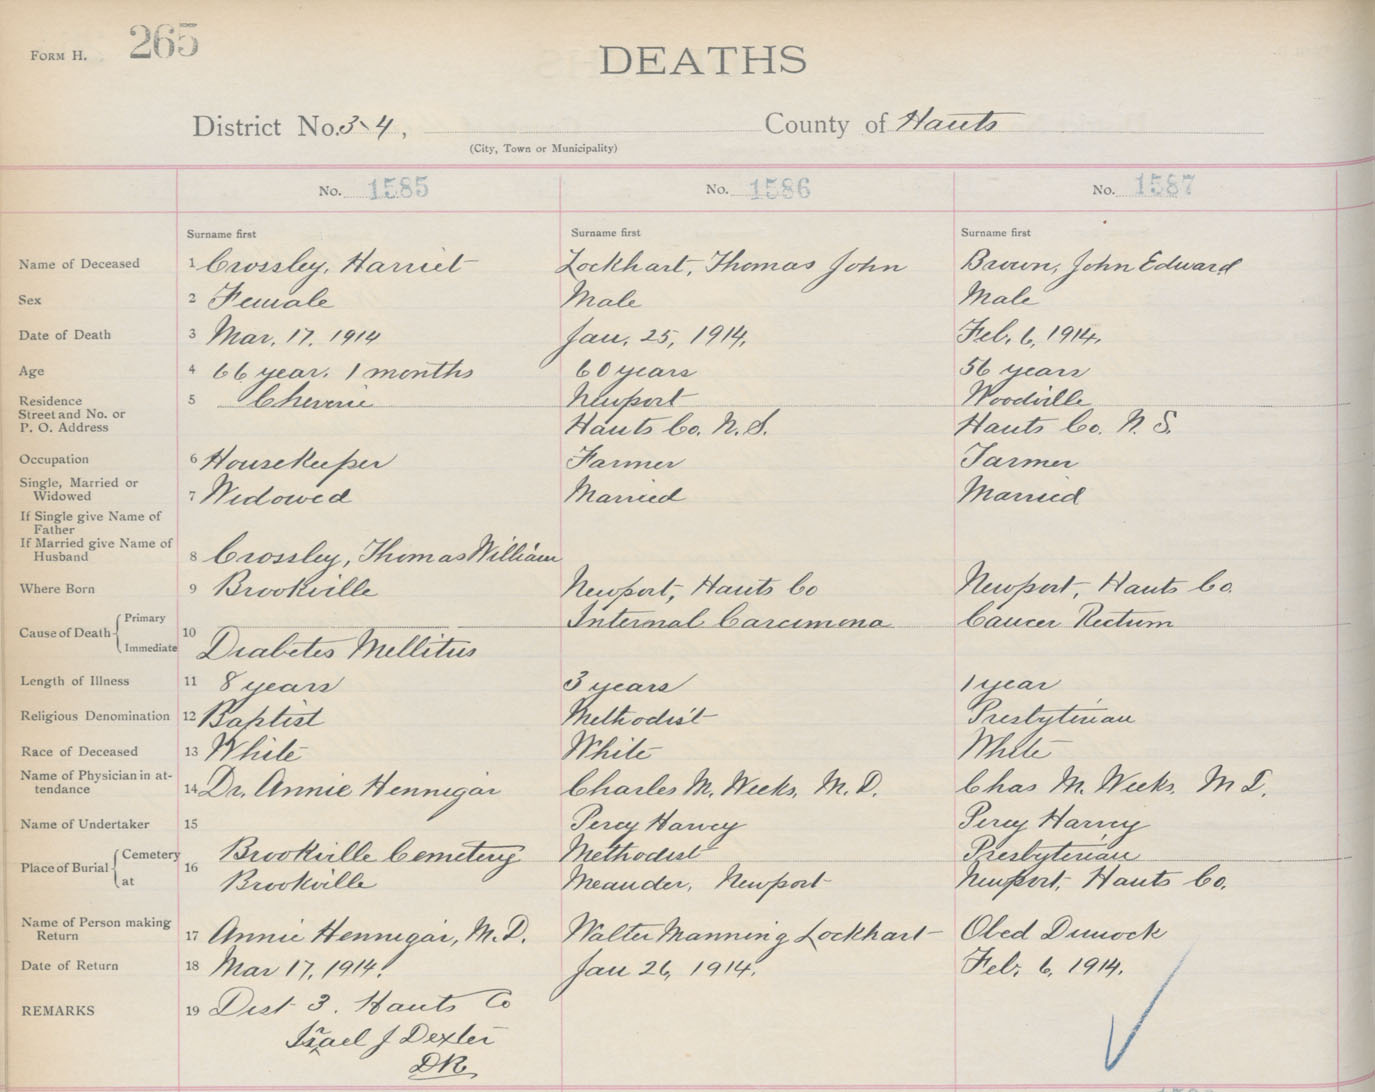 FORM H. 265
DEATHS
District No. 3-4, County of Hants
(City, Town or Municipality)
No. 1585 No. 1586 No. 1587
Surname first Surname first Surname first
Name of Deceased 1 Crossley, Harriet Lockhart, Thomas John Brown, John Edward
Sex 2 Female Male Male
Date of Death 3 Mar. 17. 1914 Jan. 25, 1914. Feb. 6, 1914.
Age 4 66 year. 1 months 60 years 56 years
Residence 5 Cheverie Newport Woodville
Street and No. or
P. O. Address Hants Co. N. S. Hants Co. N. S.
Occupation 6 Housekeeper Farmer Farmer
Single, Married or
Widowed 7 Widowed Married Married
If Single give Name of
Father
If Married give Name of
Husband 8 Crossley, Thomas William
Where Born 9 Brookville Newport, Hants Co Newport, Hants Co.
Cause of Death Primary 10 Internal Carcimona Cancer Rectum
Immediate Diabetes Mellitus
Length of Illness 11 8 years 3 years 1 year
Religious Denomination 12 Baptist Methodist Presbyterian
Race of Deceased 13 White White White
Name of Physician in at-
tendance 14 Dr. Annie Hennigar Charles M. Weeks, M. D. Chas M. Weeks, M D.
Name of Undertaker 15 Percy Harvey Percy Harvey
Place of Burial Cemetery 16 Brookville Cemetery Methodist Presbyterian
at Brookville Meander, Newport Newport, Hants Co.
Name of Person making
Return 17 Annie Hennigar, M. D. Walter Manning Lockhart Obed Dimock
Date of Return 18 Mar 17, 1914. Jan 26, 1914. Feb. 6, 1914.
REMARKS 19 Dist 3. Hants Co
Israel J Dexter
DR